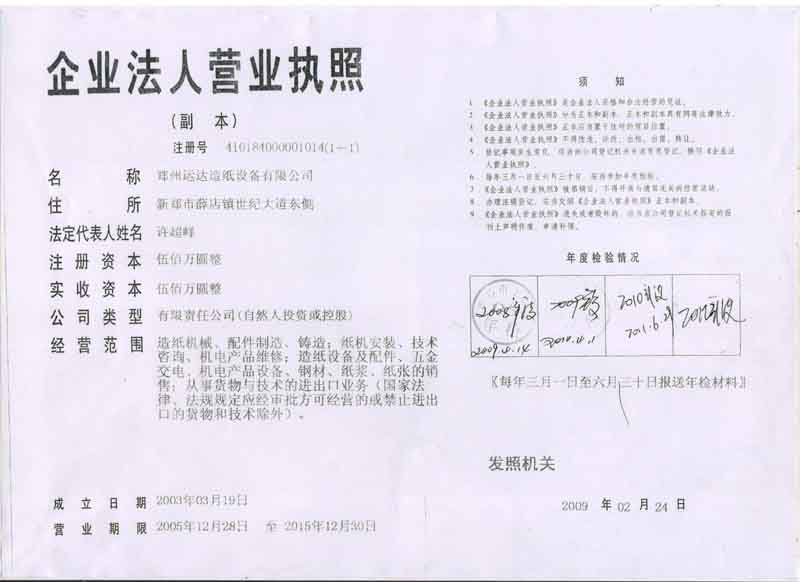 企业法人营业执照
(副 本)
注册号 410184000001014(1-1)
名 称 郑州运达造纸设备有限公司
住 所 新郑市薛店镇世纪大道东侧
法定代表人姓名 许超峰
注册资本 伍佰万圆整
实收资本 伍佰万圆整
公司类型 有限责任公司(自然人投资或控股)
经营范围 造纸机械、配件制造、铸造；纸机安装、技术
咨询、机电产品维修；造纸设备及配件、五金
交电、机电产品设备、钢材、纸浆、纸张的销
售；从事货物与技术的进出口业务（国家法
律、法规规定应经审批方可经营的或禁止进出
口的货物和技术除外）。
成立日期 2003年03月19日
营业期限 2005年12月28日 至 2015年12月30日
须 知
1 《企业法人营业执照》是企业法人资格和合法经营的凭证。
2 《企业法人营业执照》分为正本和副本，正本和副本具有同等法律效力。
3 《企业法人营业执照》正本应当置于住所的醒目位置。
4 《企业法人营业执照》不得伪造、涂改、出租、出借、转让。
5 登记事项发生变化，应当向公司登记机关申请变更登记，换领《企业法人
营业执照》。
6 每年三月一日至六月三十日，应当参加年度检验。
7 《企业法人营业执照》被吊销后，不得开展与清算无关的经营活动。
8 办理注销登记，应当交回《企业法人营业执照》正本和副本。
9 《企业法人营业执照》遗失或者毁坏的，应当在公司登记机关指定的报
刊上声明作废，申请补领。
年度检验情况
2008年
2009.4.14
2010.4.1
2010年
2011.6.2
《每年三月一日至六月三十日报送年检材料》
发照机关
2009 年 02 月 24 日